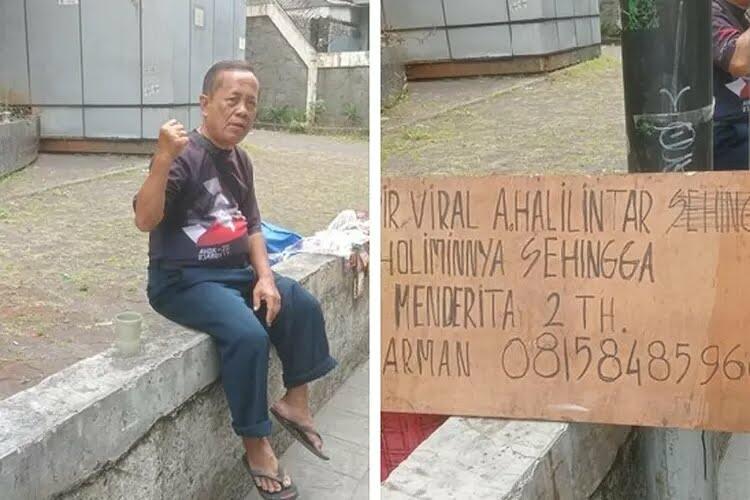 IR VIRAL A.HALILINTAR SEHING
HOLIMINNYA SEHINGGA
MENDERITA 2 TH.
ARMAN 0815848596
AHOK-